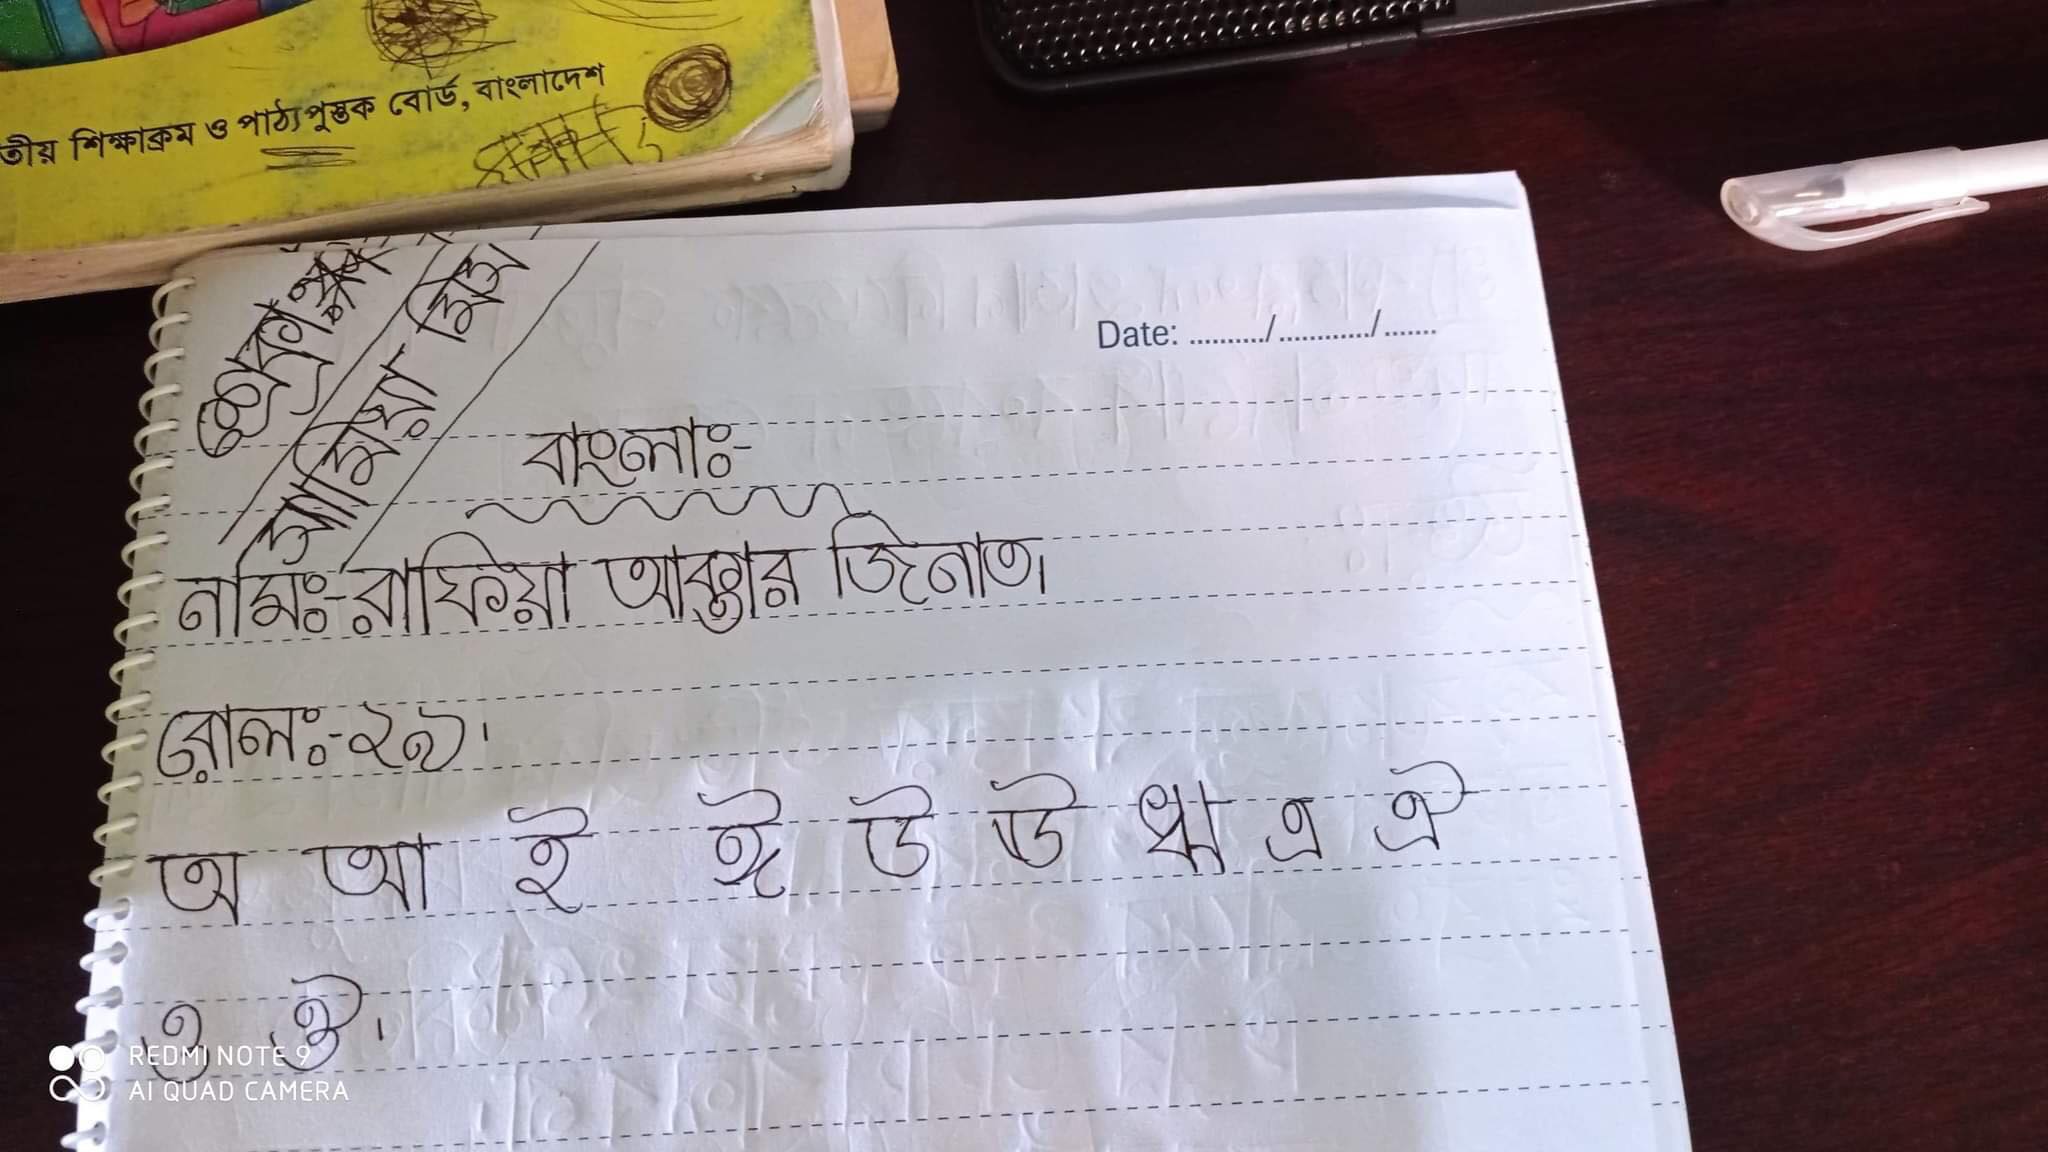 তীয় শিক্ষাক্রম ও পাঠ্যপুস্তক বোর্ড, বাংলাদেশ
Date: ........../............/.......
বাংলাঃ-
নামঃ-রাফিয়া আক্তার জিনাত।
রোলঃ-২৯।
অ আ ই ঈ উ ঊ ঋ এ ঐ
ও ঔ।
REDMI NOTE 9
AI QUAD CAMERA